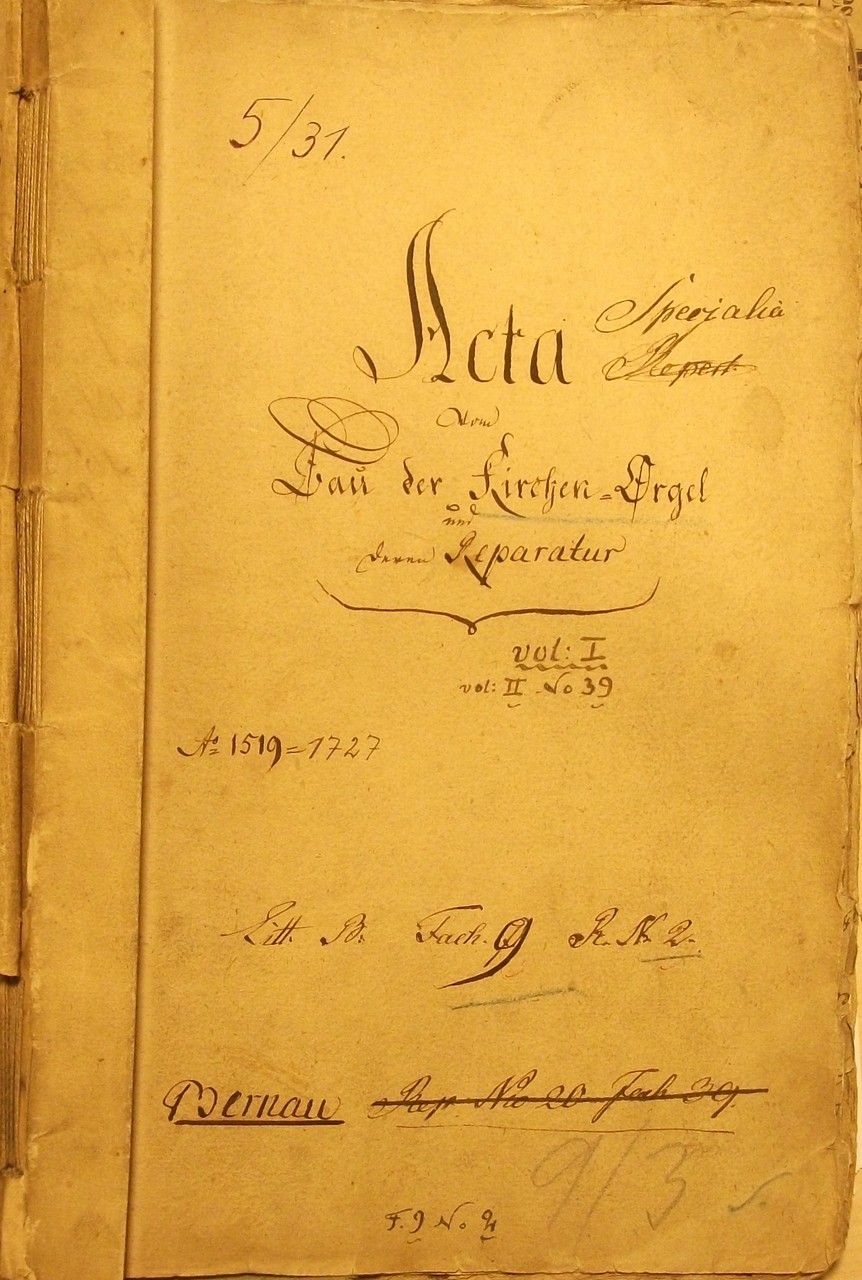 5/31.
Acta Specialia
Repert.
vom
Bau der Kirchen=Orgel
und
deren Reparatur
vol: I
vol: II No 39
Ao 1519=1727
Litt. B. Fach. 9 R. No 2.
Bernau Rep No 20 Fach 39.
9/3
F. 9 No 2